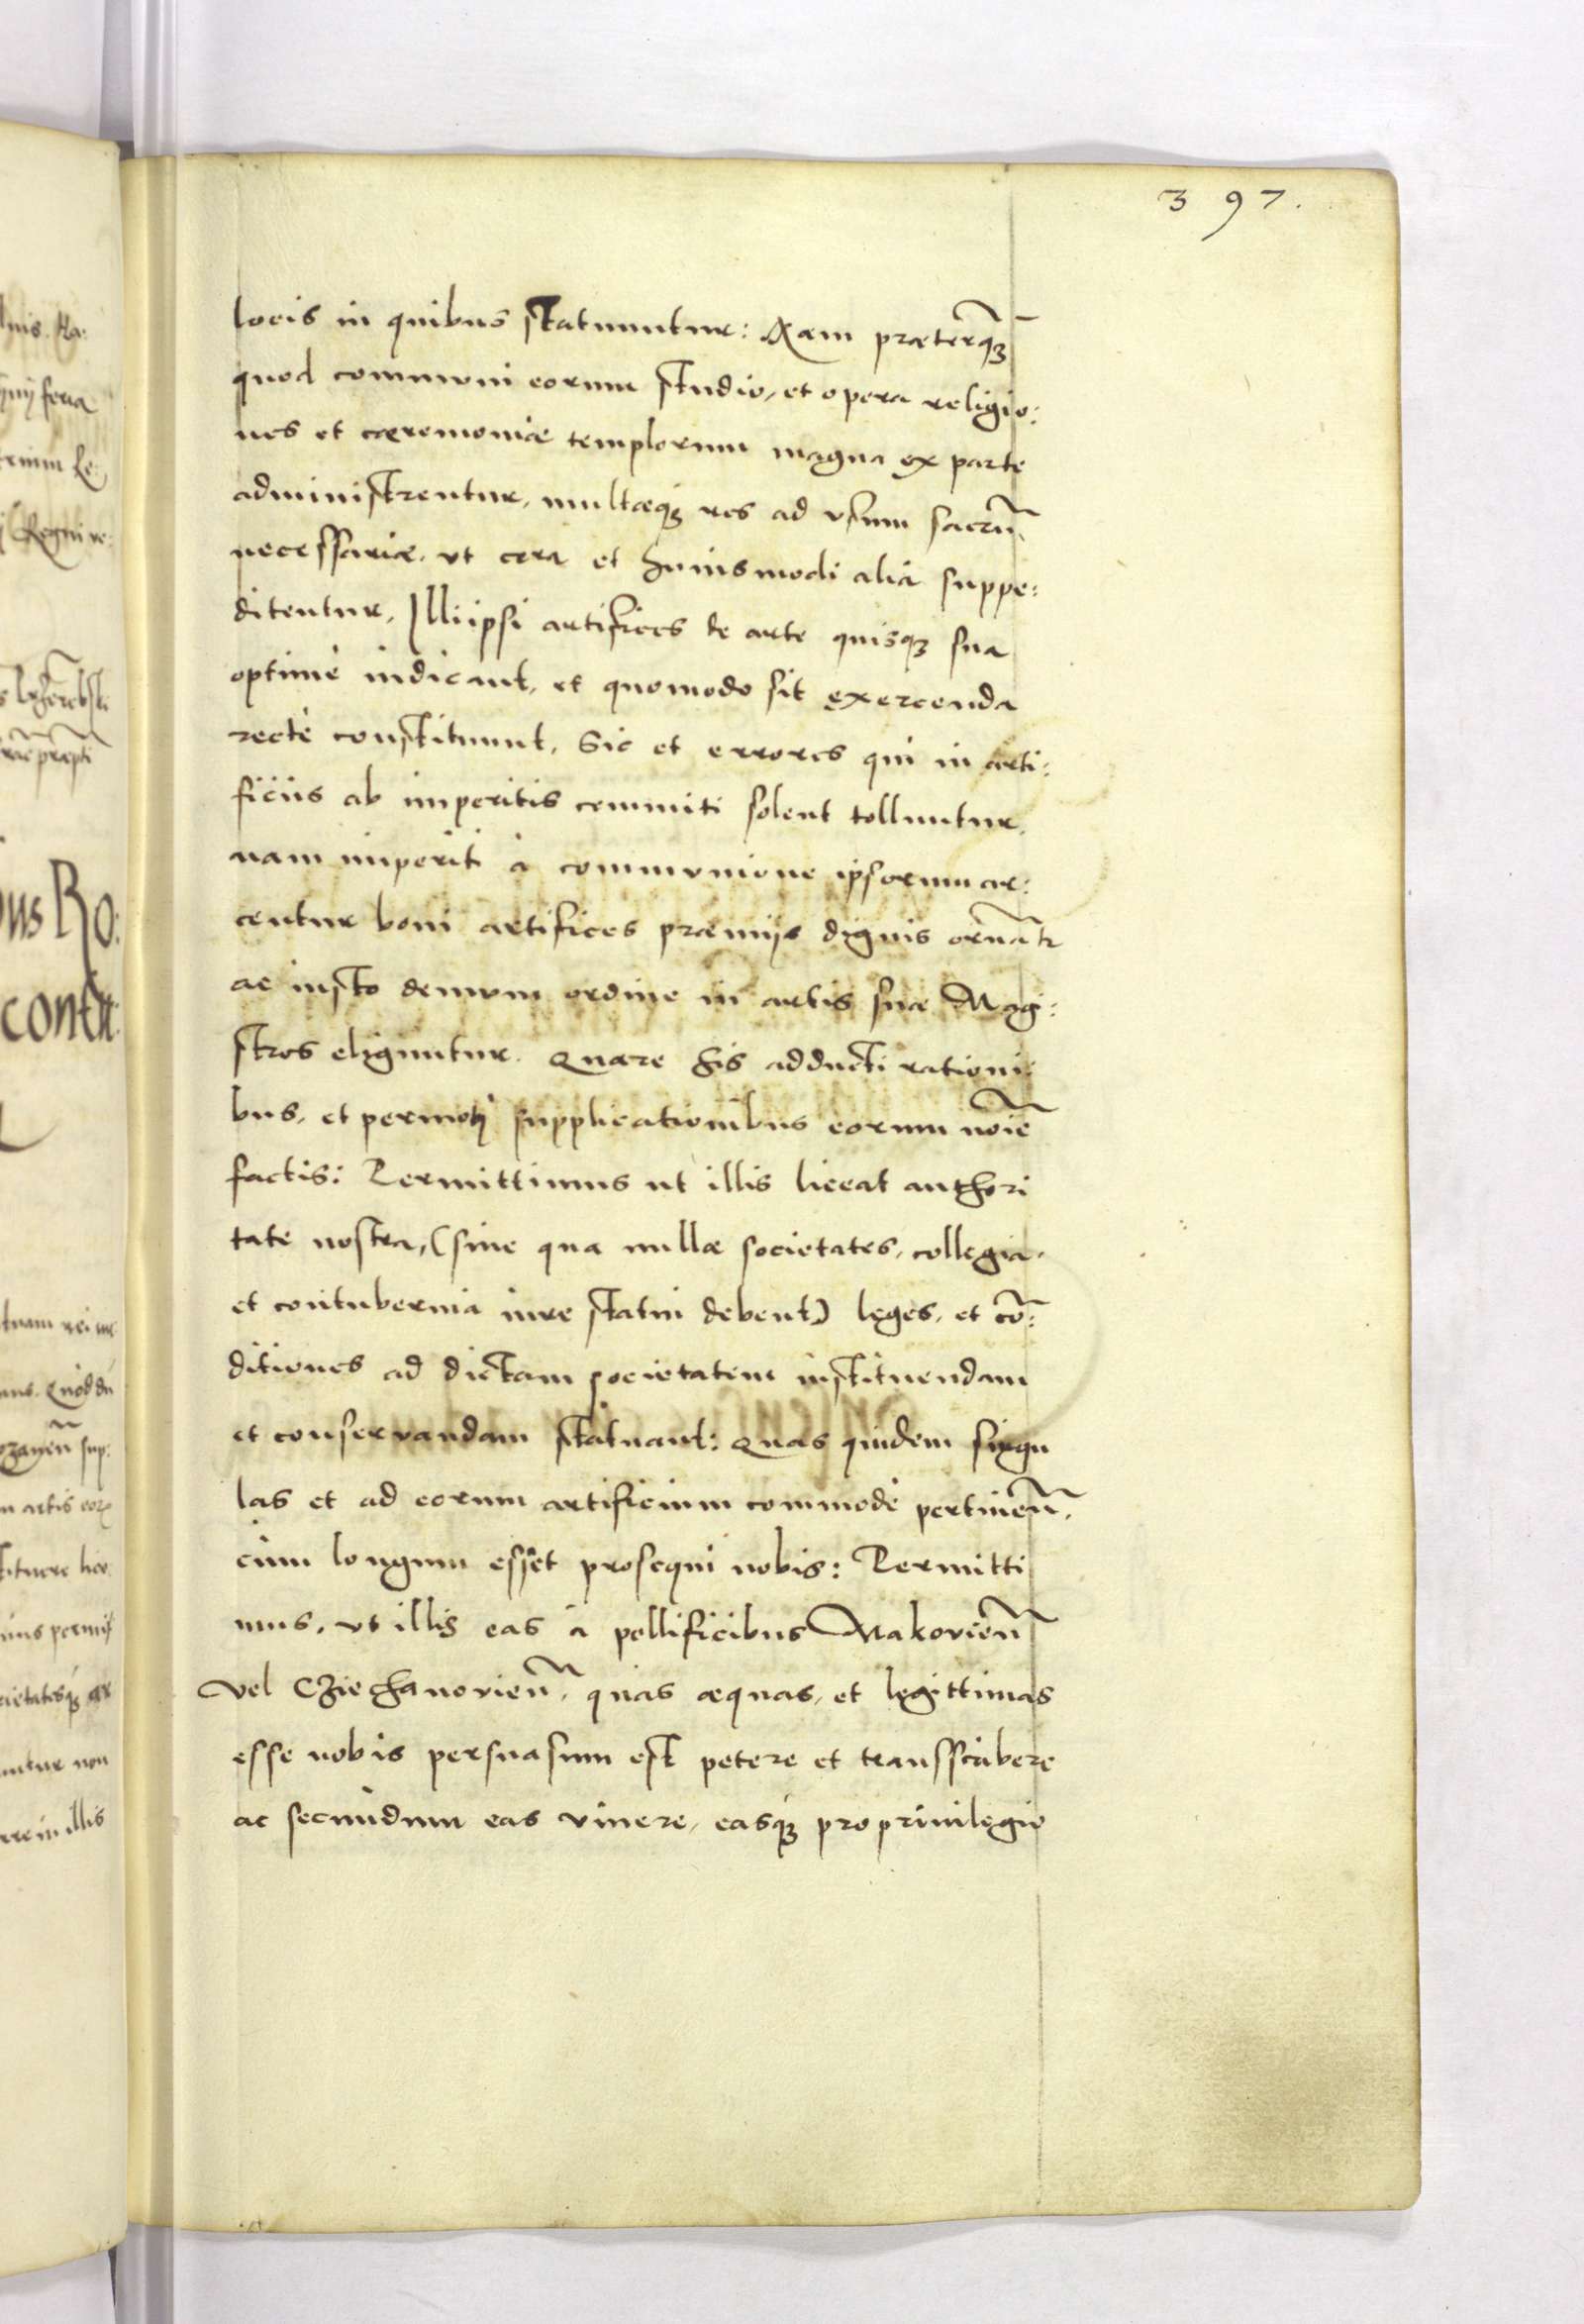 397.
locis in quibus statuuntur: Nam præterq̃ʒ
quod communi eorum studio, et opera religio:
nes et cæremoniæ templorum magna ex parte
administrentur, multæqʒ res ad vsum sacrũ
necessariæ, vt cera et huiusmodi alia suppe:
ditentur, Illi ipsi artifices de arte quisqʒ sua
optimè iudicant, et quomodo sit exercenda
rectè constituunt, Sic et errores qui in arti:
ficiis ab imperitis committi solent tolluntur,
nam imperiti à communione ipsorum ar:
centur boni artifices præmijs dignis ornãtr
ac iusto demum ordine in artis suæ Magi:
stros eliguntur. Quare his adducti rationi:
bus, et permoti supplicationibus eorum noĩe
factis: Permittimus ut illis liceat authori
tate nostra, (sine qua nullæ societates, collegia,
et contubernia iure statui debent) leges, et cõ:
ditiones ad dictam societatem instituendam
et conservandam statuant: Quas quidem singu
las et ad eorum artificium commodè pertineñ,
cùm longum esset prosequi nobis: Permitti
mus, vt illis eas à pellificibus Makovieñ
vel Cziechanovieñ, quas æquas, et legittimas
esse nobis persuasum est petere et transscribere
ac secundum eas viuere, easqʒ pro priuilegio